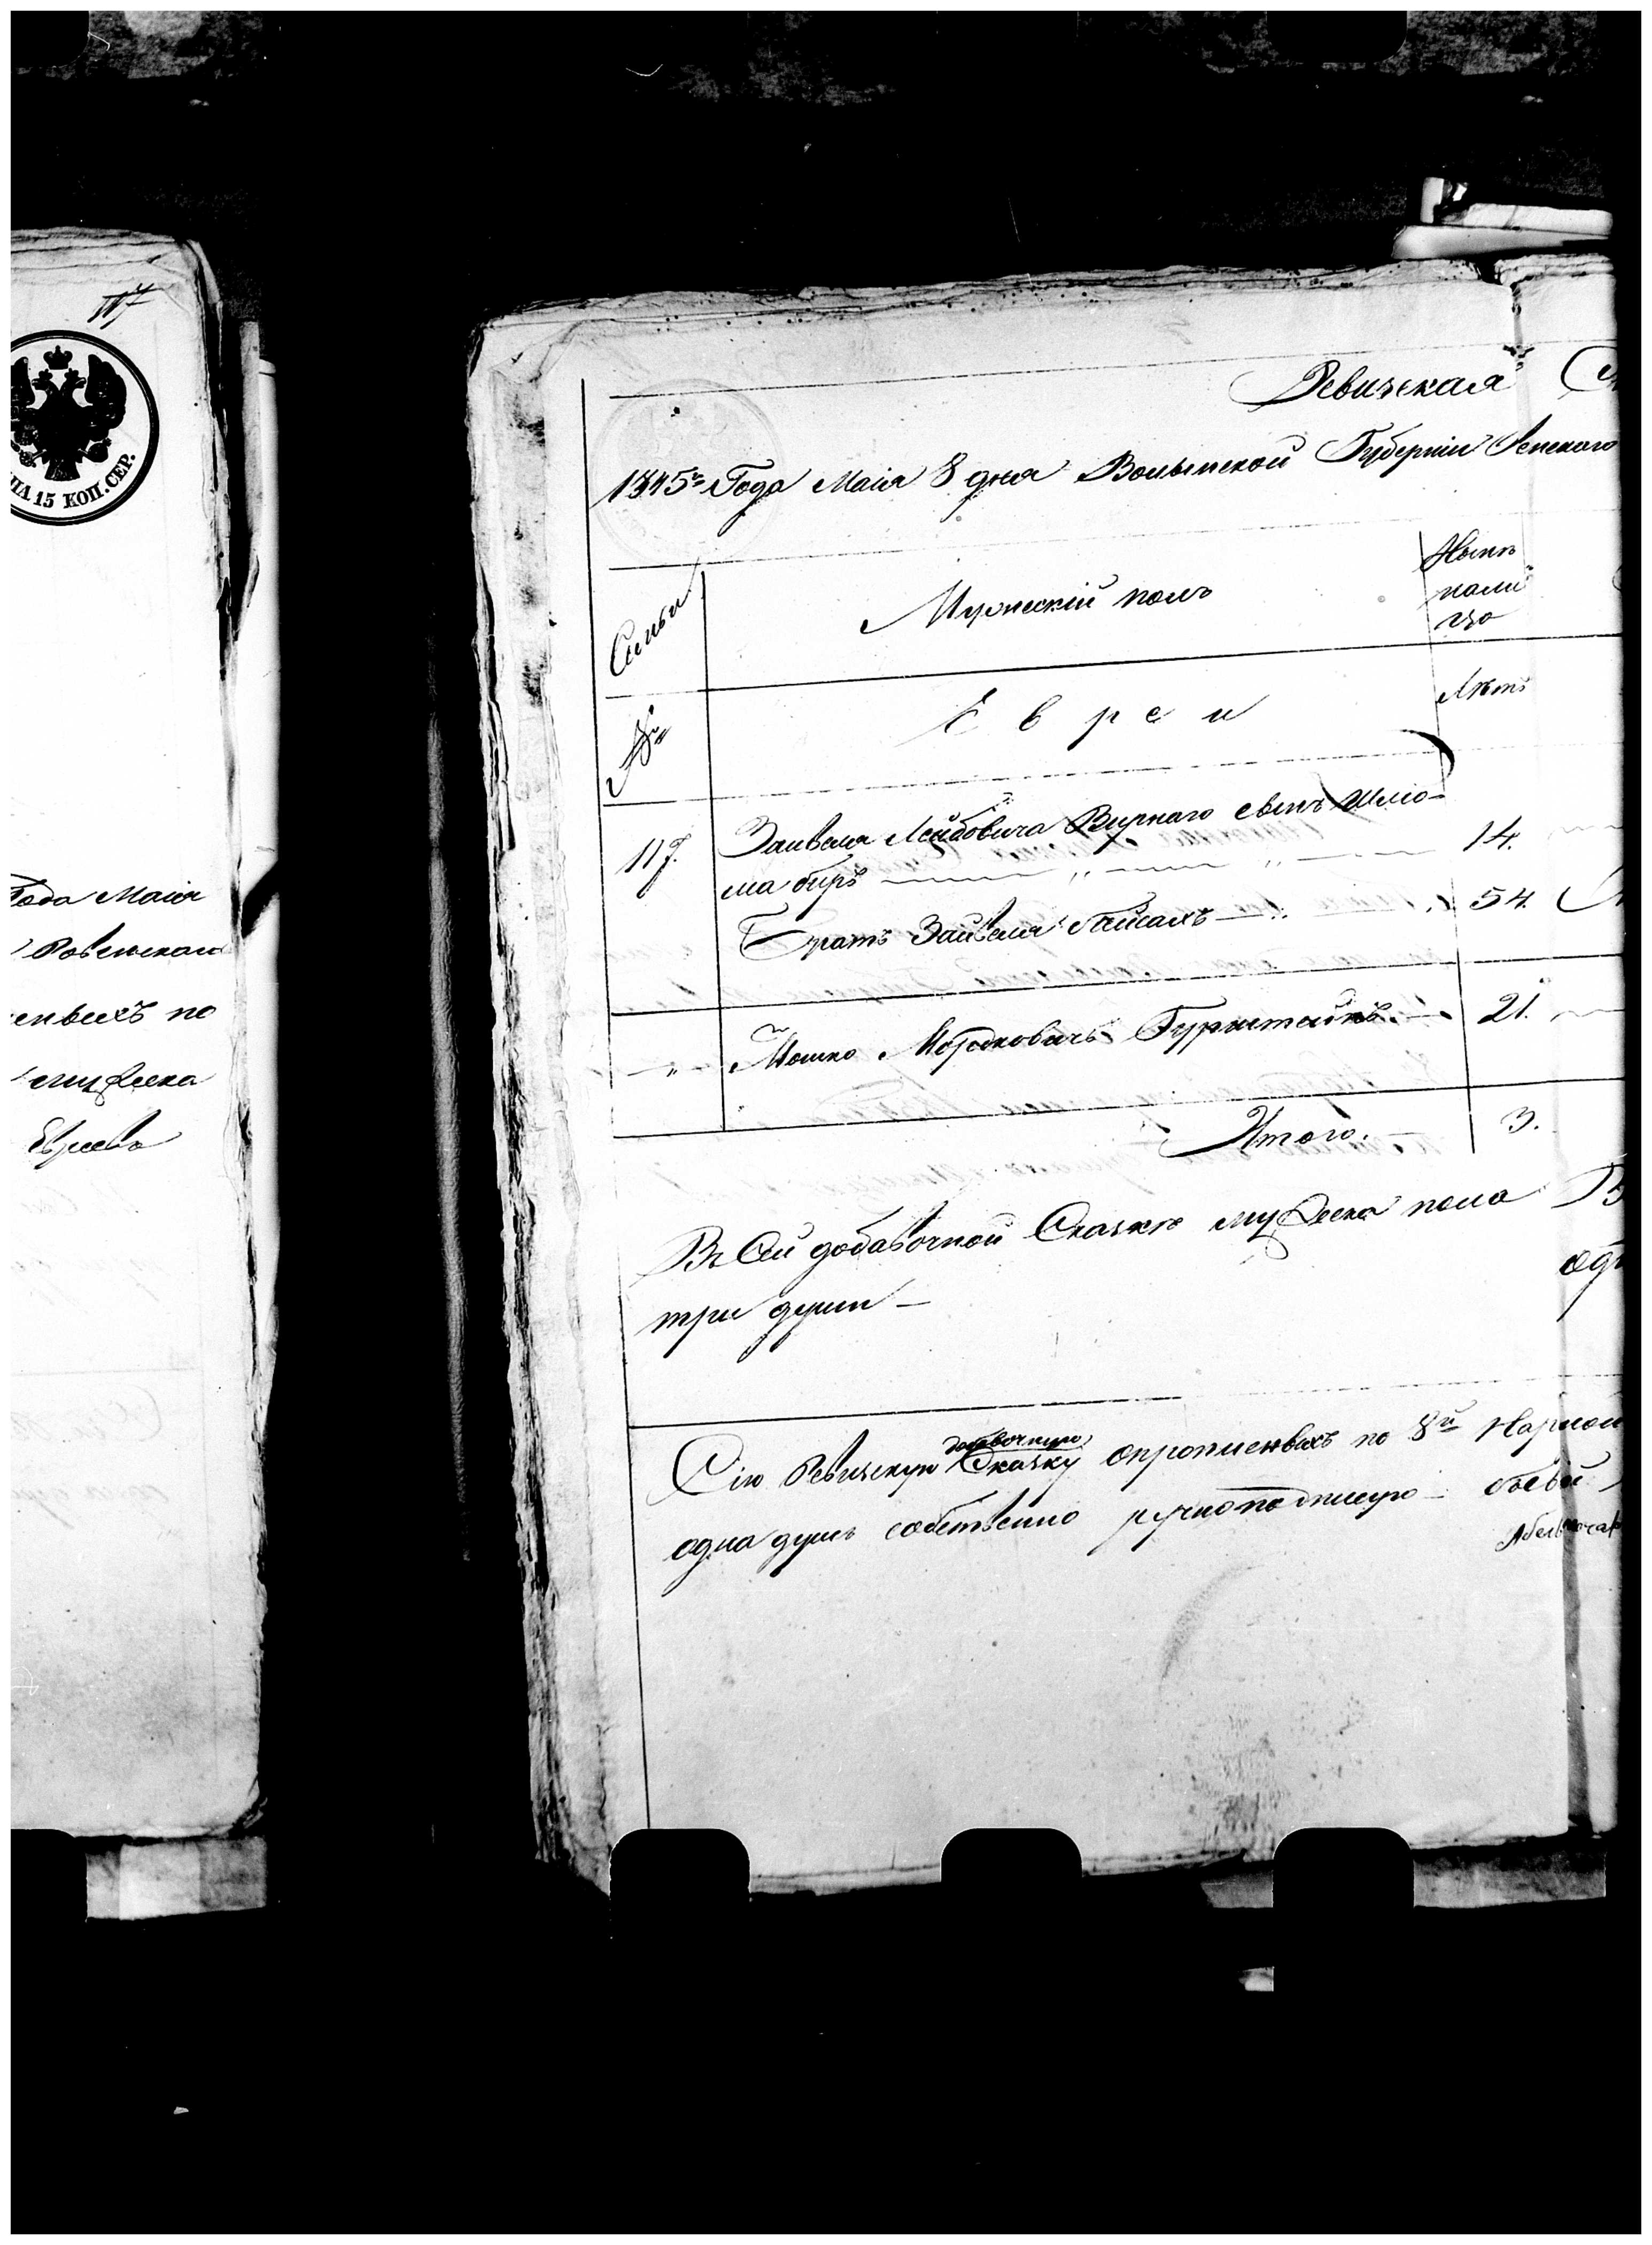 117
ПА 15 КОП. СЕР.
Года Маія
Ровенскаго
енныхъ по
мужеска
Евреевъ
Ревизская
1845го Года Маія 8 дня Волынской Губерніи
Семьи
Мужескій полъ
Нынѣ
на ли
цо
№
Евреи
Лѣтъ
117.
Зайвеля Лейбовича Вирнаго сынъ Шліо-
ма биръ
14.
Братъ Зайвеля Пейсахъ
54.
"
Мошко Мордковичъ Гурштейнъ.
21.
Итого.
3.
Въ сей добавочной Сказкѣ мужеска пола
три души —
добавочную
Сію Ревизскую Сказку о пропущенныхъ по 8й
одна душъ собственно ручно подписую